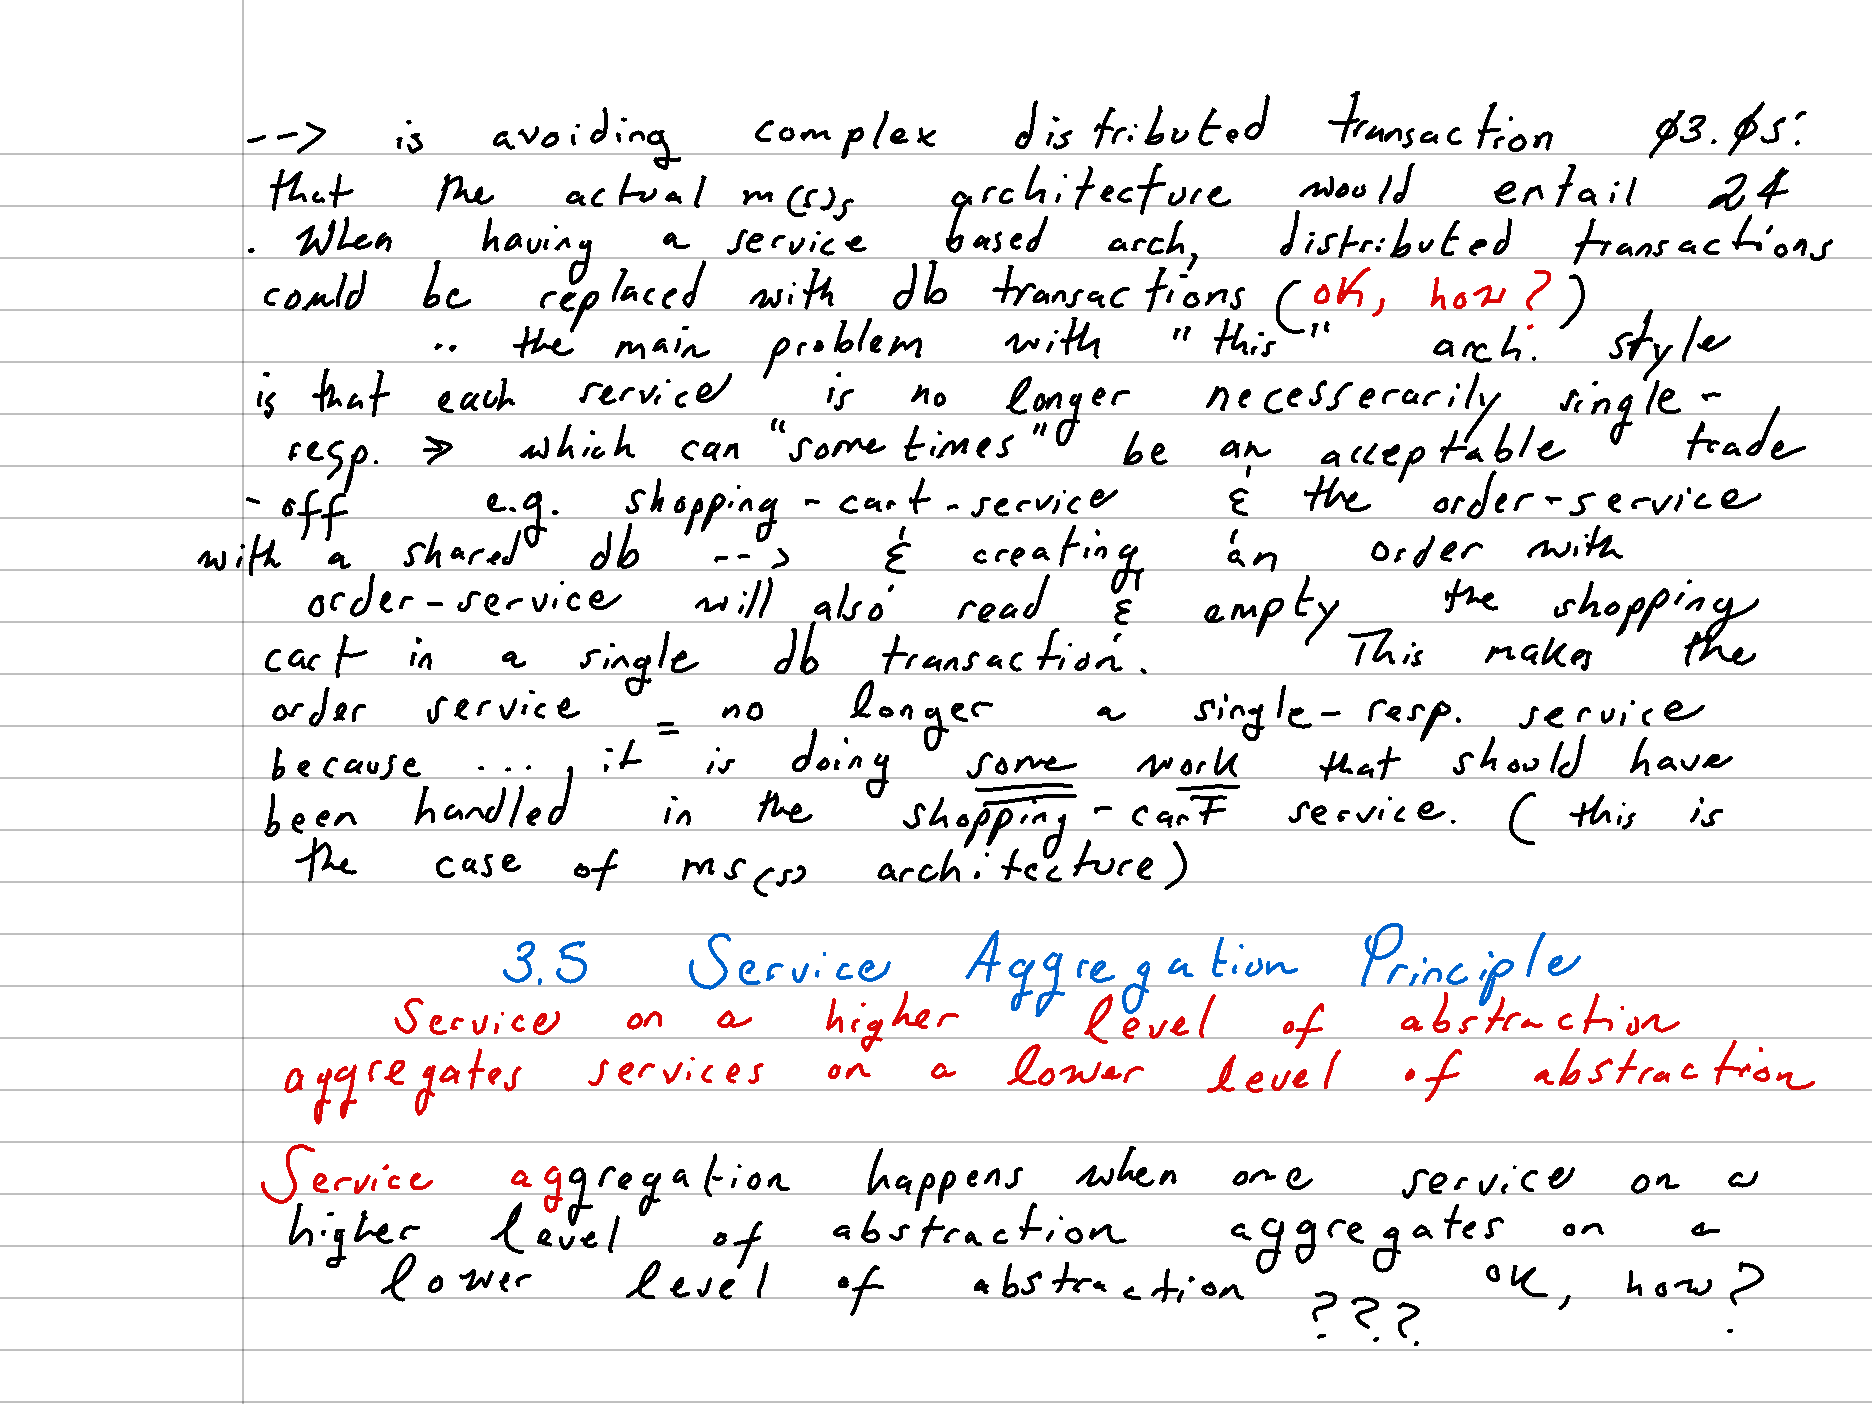 --> is avoiding complex distributed transaction 03.05:
that the actual m(s)s architecture would entail 24
. When having a service based arch, distributed transactions
could be replaced with db transactions (OK, how?)
.. the main problem with "this" arch. style
is that each service is no longer necesserarily single-
resp. => which can "sometimes" be an acceptable trade
-off e.g. shopping-cart-service & the order-service
with a shared db --> & creating an order with
order-service will also read & empty the shopping
cart in a single db transaction. This makes the
order service = no longer a single-resp. service
because ..., it is doing some work that should have
been handled in the shopping-cart service. (this is
the case of ms(s) architecture)
3.5 Service Aggregation Principle
Service on a higher level of abstraction
aggregates services on a lower level of abstraction
Service aggregation happens when one service on a
higher level of abstraction aggregates on a
lower level of abstraction ??? OK, how?